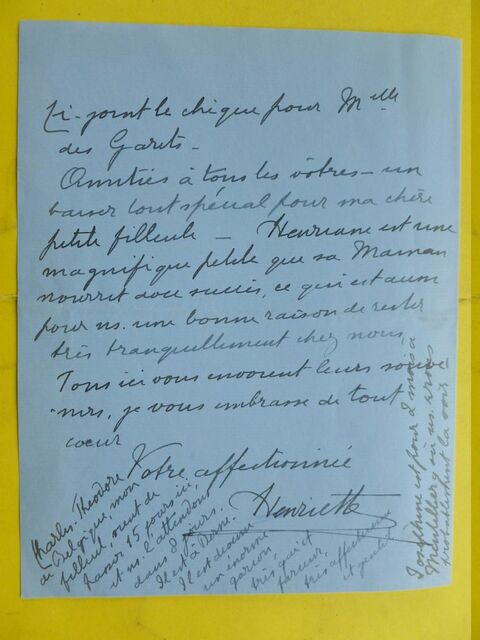 Ci-joint le chèque pour Melle
des Garets -
Amitiés à tous les vôtres - un
baiser tout spécial pour ma chère
petite filleule - Henriane est une
magnifique petite que sa Maman
nourrit avec succès, ce qui est aussi
pour ns. une bonne raison de rester
très tranquillement chez nous.
Tous ici vous envoient leurs souve
nirs, je vous embrasse de tout
coeur
Votre affectionnée
Henriette
Charles-Théodore
de Belgique, mon
filleul vient de
passer 15 jours ici
et ns. l'attendons
dans 8 jours.
Il est à Berne.
Il est devenu
un énorme
garçon,
très gai et
farceur,
très affectueux
et gentil
Joséphine est pour 2 mois à
où ns. irons
probablement la voir